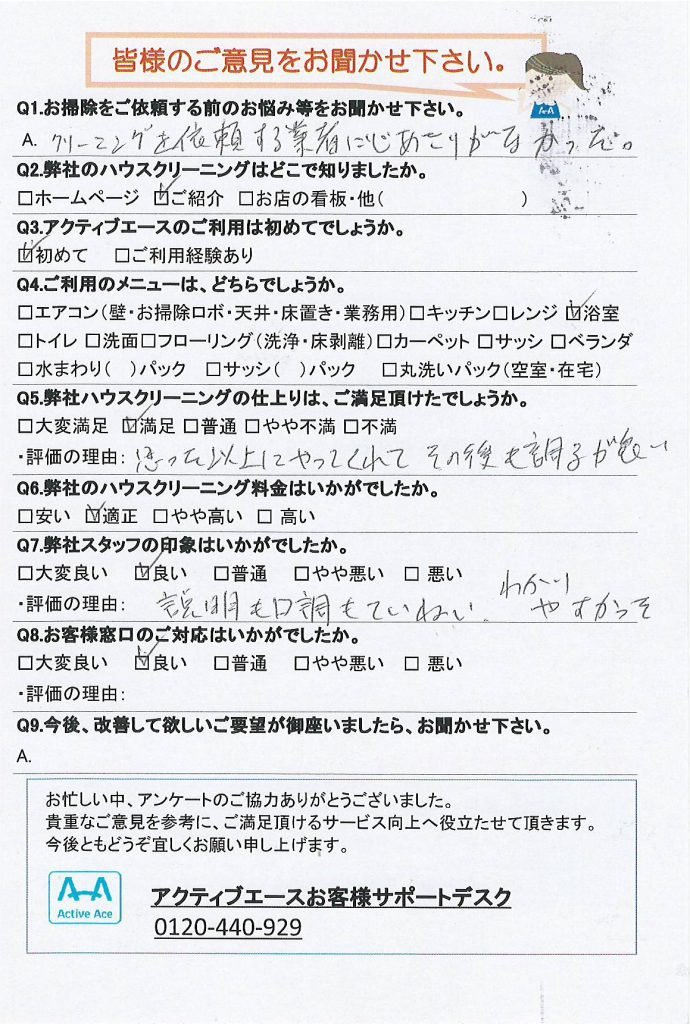 皆様のご意見をお聞かせ下さい。
Q1.お掃除をご依頼する前のお悩み等をお聞かせ下さい。
A. クリーニングを依頼する業者になじみがなかった。
Q2.弊社のハウスクリーニングはどこで知りましたか。
□ホームページ ☑ご紹介 □お店の看板・他( )
Q3.アクティブエースのご利用は初めてでしょうか。
☑初めて □ご利用経験あり
Q4.ご利用のメニューは、どちらでしょうか。
□エアコン(壁・お掃除ロボ・天井・床置き・業務用)□キッチン□レンジ ☑浴室
□トイレ □洗面□フローリング(洗浄・床剥離)□カーペット □サッシ □ベランダ
□水まわり( )パック □サッシ( )パック □丸洗いパック(空室・在宅)
Q5.弊社ハウスクリーニングの仕上りは、ご満足頂けたでしょうか。
□大変満足 ☑満足 □普通 □やや不満 □不満
・評価の理由: 思った以上にやってくれて その後も調子が良い
Q6.弊社のハウスクリーニング料金はいかがでしたか。
□安い ☑適正 □やや高い □ 高い
Q7.弊社スタッフの印象はいかがでしたか。
□大変良い ☑良い □普通 □やや悪い □ 悪い
・評価の理由: 説明も口調もていねい、わかり
やすかった
Q8.お客様窓口のご対応はいかがでしたか。
□大変良い ☑良い □普通 □やや悪い □ 悪い
・評価の理由:
Q9.今後、改善して欲しいご要望が御座いましたら、お聞かせ下さい。
A.
お忙しい中、アンケートのご協力ありがとうございました。
貴重なご意見を参考に、ご満足頂けるサービス向上へ役立たせて頂きます。
今後ともどうぞ宜しくお願い申し上げます。
A-A
Active Ace
アクティブエースお客様サポートデスク
0120-440-929